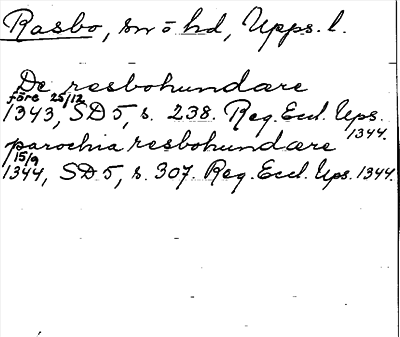 Rasbo, sn o hd, Upps. l.
De resbohundare
före 25/12
1343, SD 5, s. 238. Reg. Eccl. Ups.
1344.
parochia resbohundare
15/9
1344, SD 5, s. 307. Reg. Eccl. Ups. 1344.